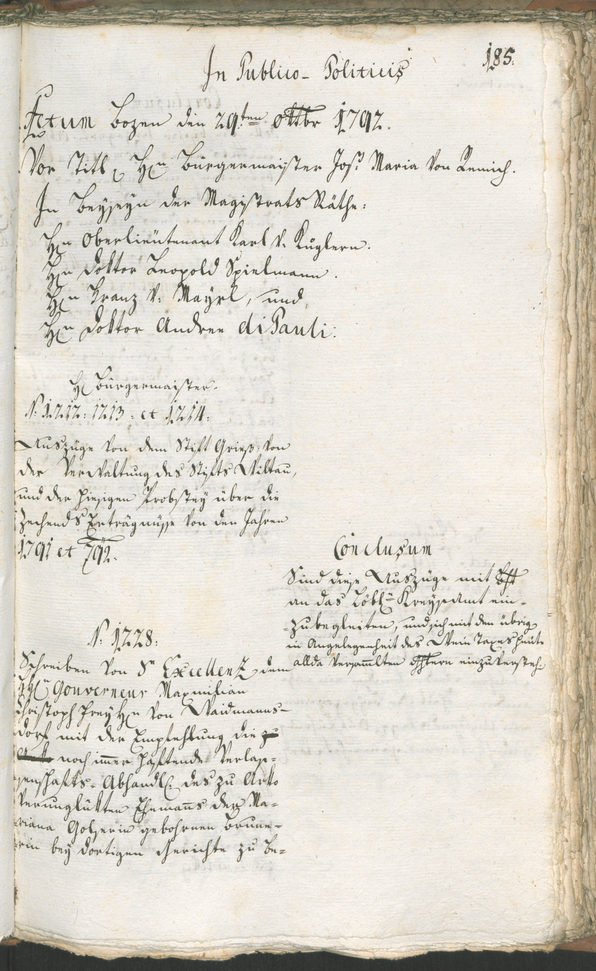 185.
In Publico-Politicis
Actum Bozen den 29ten 8ttbr 1792.
Vor Titl. Hn Bürgermaister Jos. Maria von Remich.
In Beyseyn der Magistrats Räthe:
Hn Oberlieutenant Karl v. Kuglern.
Hn Doktor Leopold Spielmann.
Hn Franz v. Mayrl, und
Hn Doktor Andree di Pauli.
H. Bürgermaister.
N. 1212: 1213: et 1214:
Auszüge von dem Stift Grieß, von
der Verwaltung des Stifts Wiltau,
und der hiesigen Probstey über die
Zechends Erträgnüsse von den Jahren
1791 et 792.
Conclusum
Sind diese Auszüge mit
an das Löbl. Kreysamt ein-
zubegleiten, und sich mit den übrig
in Angelegenheit des Wein Taxes heute
allda versammlten einzuverstehn
N. 1228:
Schreiben von Sr Excellenz dem
Gouverneur Maximilian
Christoph Frey Hn von Waidmanns-
dorf mit der Empfehlung die
noch immer haftende Verlas-
senschafts-Abhandl. des zu Arko
verunglükten Ehemanns der Ma-
riana Golserin gebohrnen Brune-
rin bey dortigen Gerichte zu be-